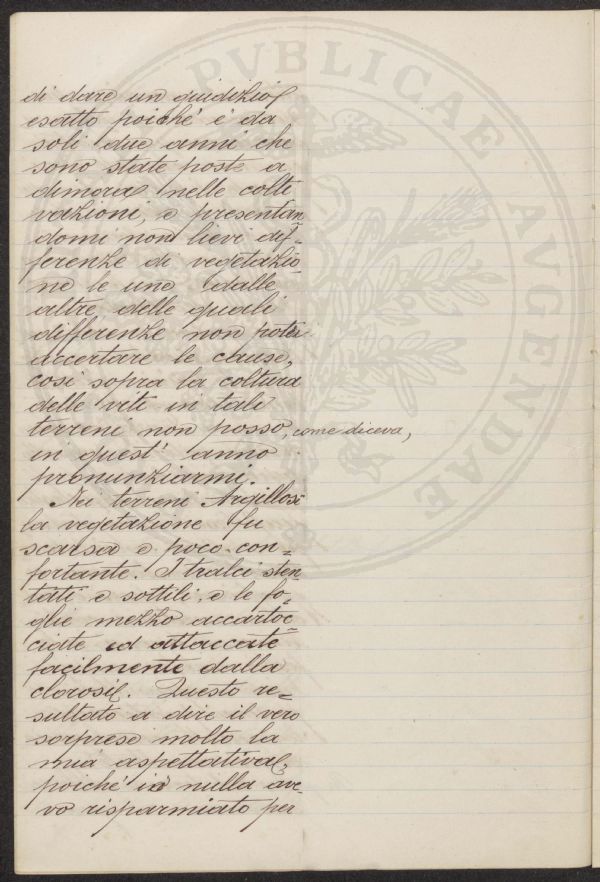 di dare un giudizio
esatto poichè è da
soli due anni che
sono state poste a
dimora nelle colti
vazioni, e presentan-
domi non lievi dif-
ferenze di vegetazio-
ne le une dalle
altre, delle quali
differenze non potei
accertare le cause,
così sopra la coltura
delle viti in tali
terreni non posso, come diceva,
in quest' anno
pronunziarmi.
Nei terreni Argillosi
la vegetazione fu
scarsa e poco con-
fortante. I tralci sten
tati e sottili, e le fo-
glie mezzo accartoc-
ciate ed attaccate
facilmente dalla
clorosi. Questo re-
sultato a dire il vero
sorprese molto la
mia aspettativa,
poichè io nulla ave-
vo risparmiato per
PVBLICAE AVGENDAE